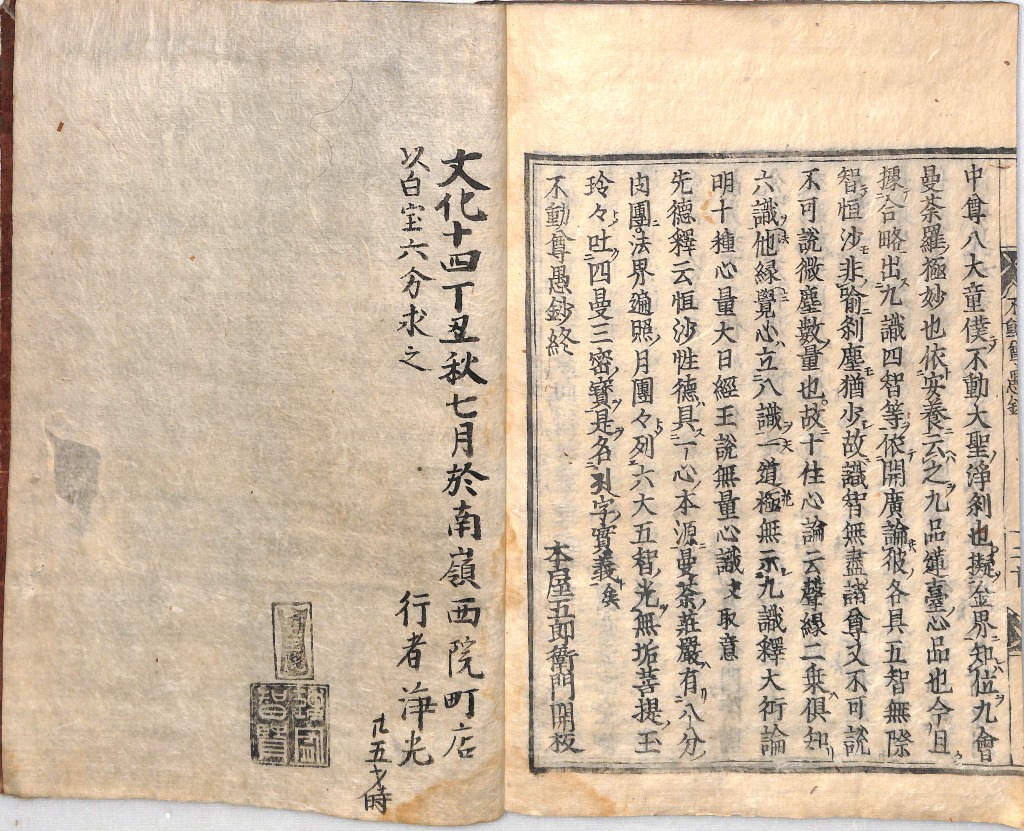 中尊八大童僕不動大聖淨刹也擬金界知位九會
曼荼羅極妙也依安養云之九品蓮臺心品也今且
據合略出九識四智等依開廣論彼各具五智無際
智恒沙非喻刹塵猶少故識智無盡諸尊又不可説
不可説微塵數量也故十住心論云聲緣二乘俱知
六識他緣覺心立八識一道極無示九識釋大衍論
明十種心量大日經王説無量心識 文 取意
先德釋云恒沙性德具一心本源曼荼莊嚴有八分
肉團法界遍照月團々列六大五智光無垢菩提王
玲々吐四曼三密寶是名字實義矣
不動尊愚鈔終
本屋五郎衛門開板
不動尊愚鈔
文化十四丁丑秋七月於南嶺西院町店
以白宝六分求之
行者海光
廿五才時